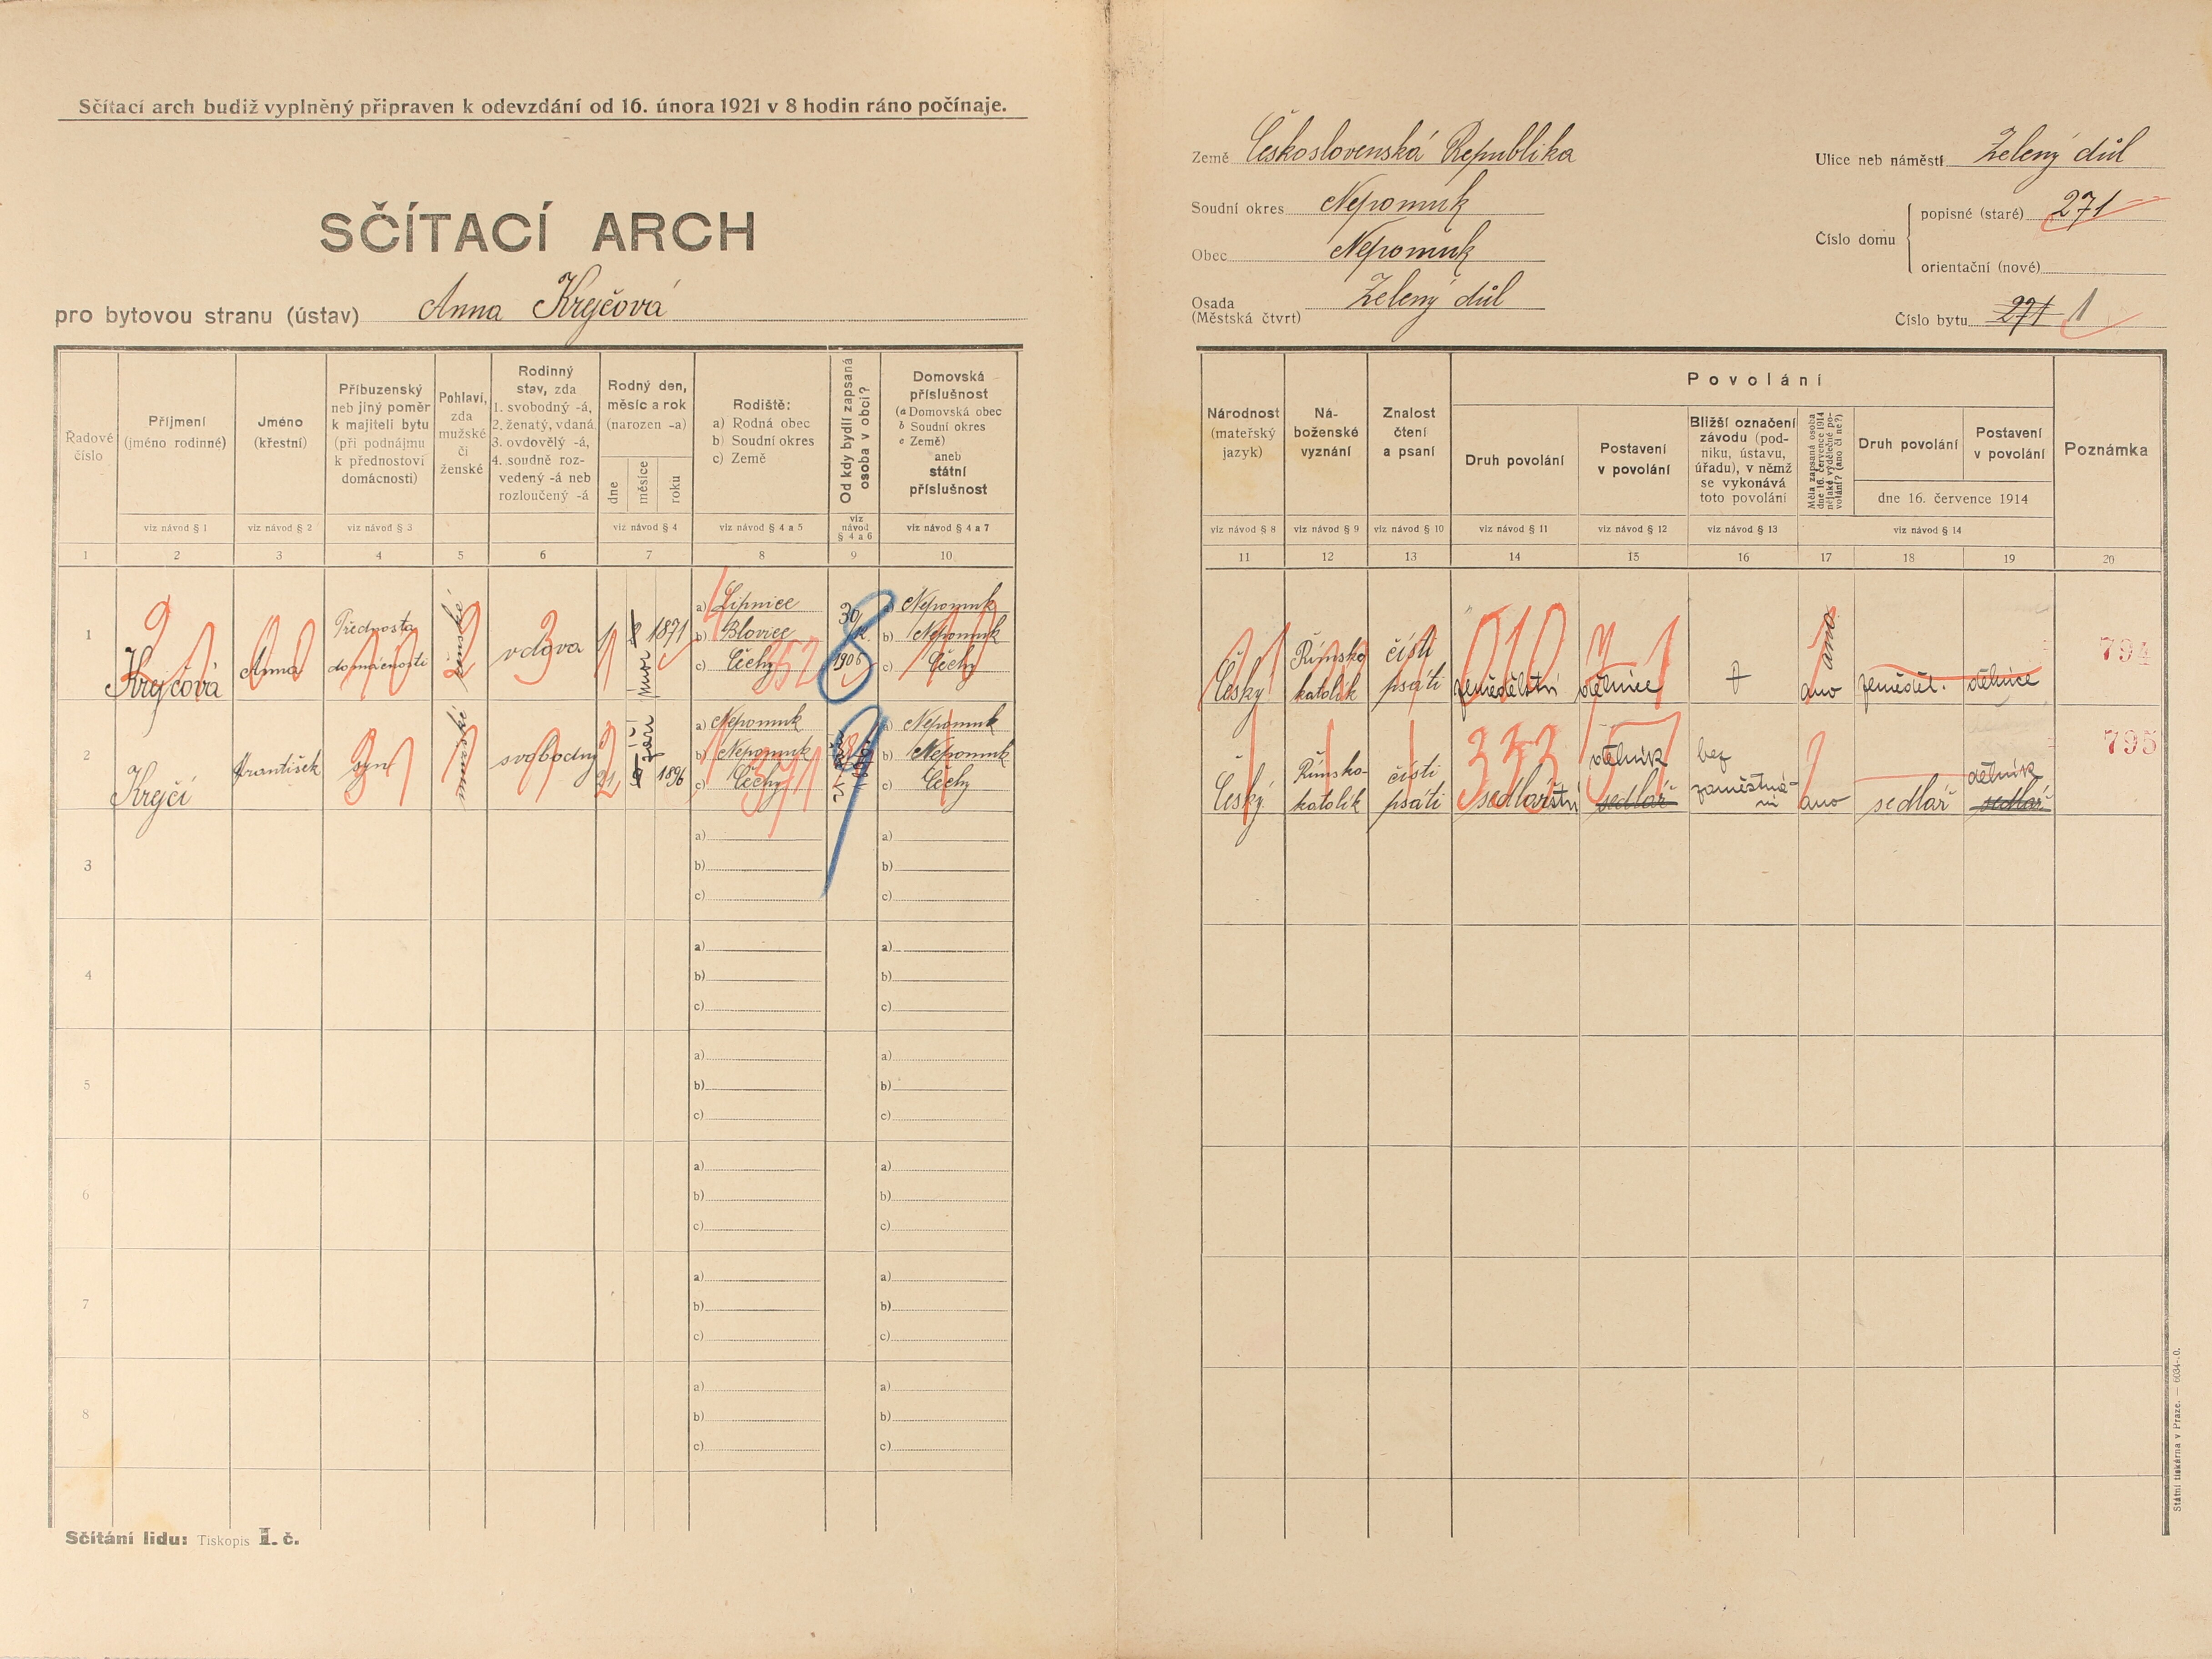 Sčítací arch budiž vyplněný připraven k odevzdání od 16. února 1921 v 8 hodin ráno počínaje.
SČÍTACÍ ARCH
pro bytovou stranu (ústav) Anna Krejčová
Země Československá Republika
Soudní okres Nepomuk
Obec Nepomuk
Osada (Městská čtvrt) Zelený důl
Ulice neb náměstí Zelený důl
Číslo domu
popisné (staré) 271
orientační (nové)
Číslo bytu 271 1
Řadové číslo
Příjmení (jméno rodinné)
Jméno (křestní)
Příbuzenský neb jiný poměr k majiteli bytu (při podnájmu k přednostovi domácnosti)
Pohlaví, zda mužské či ženské
Rodinný stav, zda 1. svobodný -á, 2. ženatý, vdaná 3. ovdovělý -á, 4. soudně rozvedený -á neb rozloučený -á
Rodný den, měsíc a rok (narozen -a)
dne
měsíce
roku
Rodiště: a) Rodná obec b) Soudní okres c) Země
Od kdy bydlí zapsaná osoba v obci?
Domovská příslušnost (a Domovská obec b Soudní okres c Země) aneb státní příslušnost
viz návod § 1
viz návod § 2
viz návod § 3
viz návod § 4
viz návod § 4 a 5
viz návod § 4 a 6
viz návod § 4 a 7
1 2 3 4 5 6 7 8 9 10
Národnost (mateřský jazyk)
Náboženské vyznání
Znalost čtení a psaní
Povolání
Druh povolání
Postavení v povolání
Bližší označení závodu (podniku, ústavu, úřadu), v němž se vykonává toto povolání
Měla zapsaná osoba dne 16. července 1914 nějaké výdělečné povolání? (ano či ne?)
Druh povolání
Postavení v povolání
dne 16. července 1914
Poznámka
viz návod § 8
viz návod § 9
viz návod § 10
viz návod § 11
viz návod § 12
viz návod § 13
viz návod § 14
11 12 13 14 15 16 17 18 19 20
1
Krejčová
Anna
Přednosta
domácnosti
ženské
vdova
únor
1871
a) Lipnice
b) Blovice
c) Čechy
1906
Nepomuk
b) Nepomuk
c) Čechy
Česky
Římsko
katolík
čísti
psáti
010
zemědělství
dělnice
ano
ano
zeměděl.
dělnice
794
2
Krejčí
František
syn
mužské
svobodný
21
září
1896
a) Nepomuk
b) Nepomuk
c) Čechy
Nepomuk
b) Nepomuk
c) Čechy
Český
Římsko-
katolík
čísti
psáti
333
sedlářství
dělník
sedlář
bez
zaměstná-
ní
ano
sedlář
dělník
sedlář
795
3
a)
b)
c)
a)
b)
c)
4
a)
b)
c)
a)
b)
c)
5
a)
b)
c)
a)
b)
c)
6
a)
b)
c)
a)
b)
c)
7
a)
b)
c)
a)
b)
c)
8
a)
b)
c)
a)
b)
c)
Sčítání lidu: Tiskopis I. č.
Státní tiskárna v Praze. — 6034-.0.